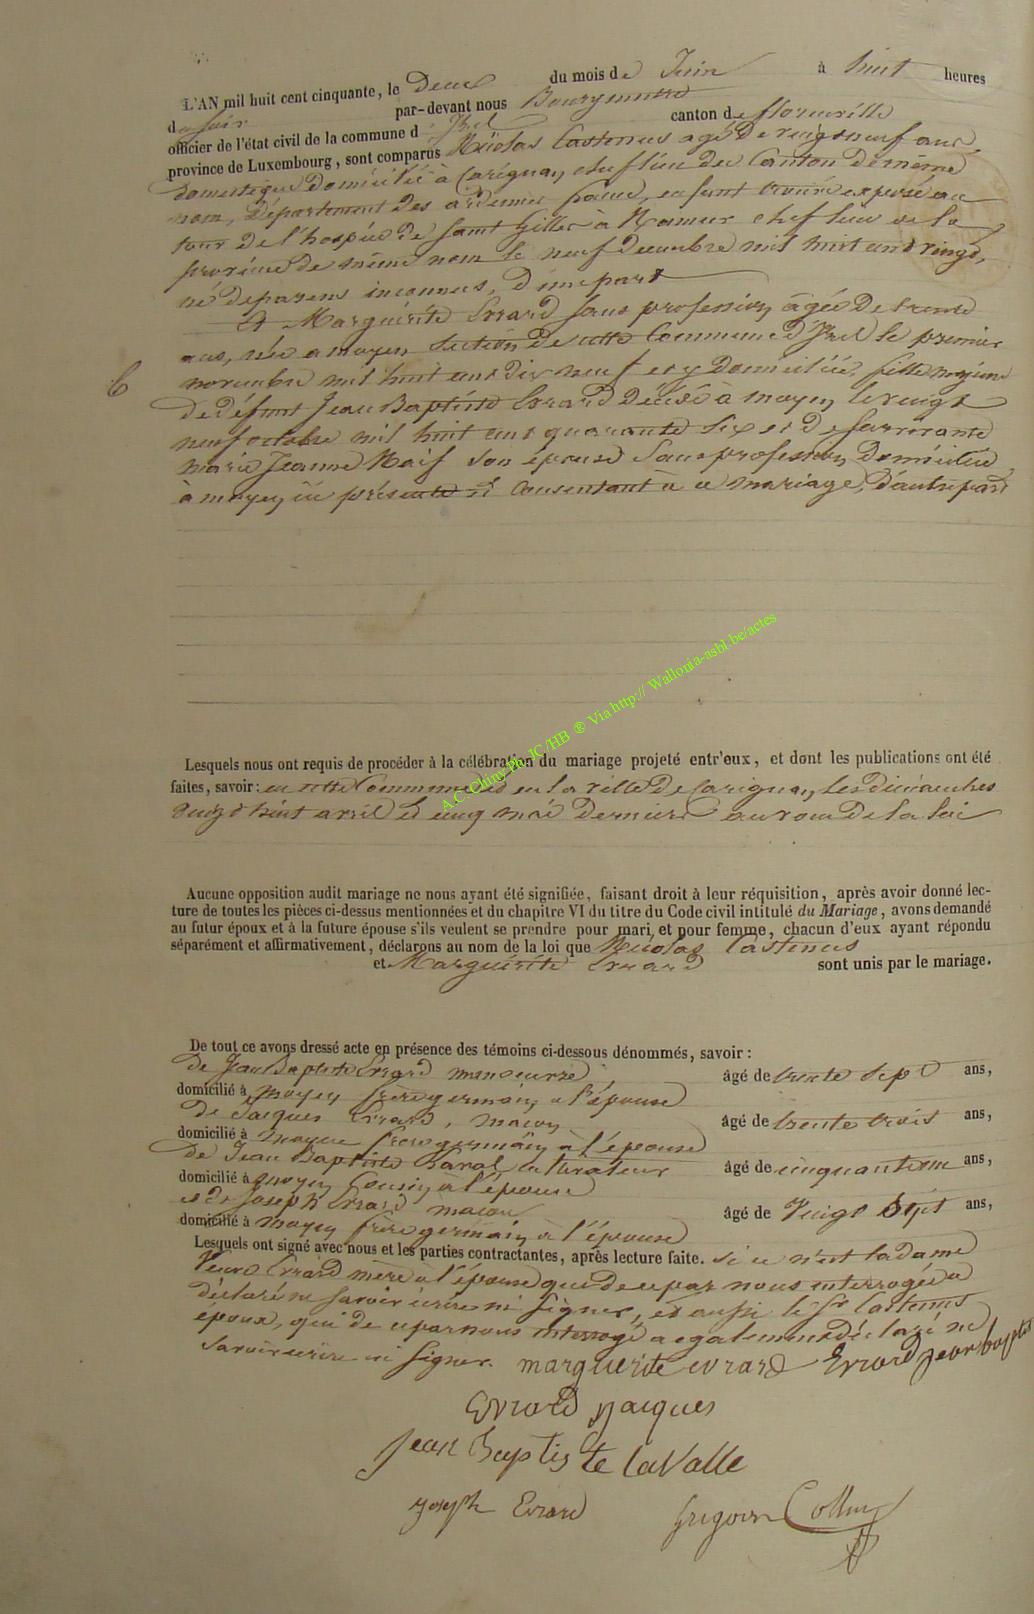 L'AN mil huit cent cinquante, le Deux du mois de Juin à huit heures
du soir par-devant nous Bourgmestre
officier de l'état civil de la commune d'Izel canton de florenville
province de Luxembourg, sont comparus Nicolas Castenus agé De vingt neuf ans,
Domestique Domicilié à Carignan, cheflieu du Canton De même
nom, Département Des ardennes france, enfant trouvé exposé au
tour De l'hospice De saint Gilles à Namur chef lieu de la
province De même nom le neuf Decembre mil huit cent vingt,
né De parens inconnus, D'une part
Et Marguérite Errard sans profession, âgée De trente
ans, née a moyen section De cette Commune d'Izel le premier
6
novembre mil huit cent Dix neuf et y Domiciliée, fille majeure
De Défunt Jean Baptiste Errard Décédé à moyen le vingt
neuf octobre mil huit cent quarante six et De survivante
marie Jeanne Naif son épouse sans profession, Domiciliée
à moyen ici présente et consentant à ce mariage, D'autre part
Lesquels nous ont requis de procéder à la célébration du mariage projeté entr'eux, et dont les publications ont été
faites, savoir: en cette Commune et en la ville De Carignan, les Dimanches
vingt huit avril et cinq mai Dernier au vœu De la loi
A.C. Chiny Ph. JC/HB ® Via http:// Wallonia-asbl.be/actes
Aucune opposition audit mariage ne nous ayant été signifiée, faisant droit à leur réquisition, après avoir donné lec-
ture de toutes les pièces ci-dessus mentionnées et du chapitre VI du titre du Code civil intitulé du Mariage, avons demandé
au futur époux et à la future épouse s'ils veulent se prendre pour mari et pour femme, chacun d'eux ayant répondu
séparément et affirmativement, déclarons au nom de la loi que Nicolas Castenus
et Marguérite Errard sont unis par le mariage.
De tout ce avons dressé acte en présence des témoins ci-dessous dénommés, savoir:
de Jean Baptiste Errard manœuvre âgé de trente sept ans,
domicilié à moyen frère germain à l'épouse
de Jacques Errard, maçon âgé de trente trois ans,
domicilié à moyen frère germain à l'épouse
de Jean Baptiste Laval, cultivateur âgé de cinquante un ans,
domicilié à moyen Cousin à l'épouse
et de Joseph Errard maçon âgé de Vingt sept ans,
domicilié à moyen frère germain à l'épouse
Lesquels ont signé avec nous et les parties contractantes, après lecture faite. si ce n'est la dame
Veuve Errard mère à l'épouse qui De ce par nous interrogée a
Déclaré ne savoir écrire ni signer, et aussi le Sr Castenus
époux, qui De ce par nous interrogé a egalement déclaré ne
savoir écrire ni signer. marguerite evrard Errard jean baptiste
Evrard jacques
jean Baptiste laValle
joseph Erard Grégoire Collin